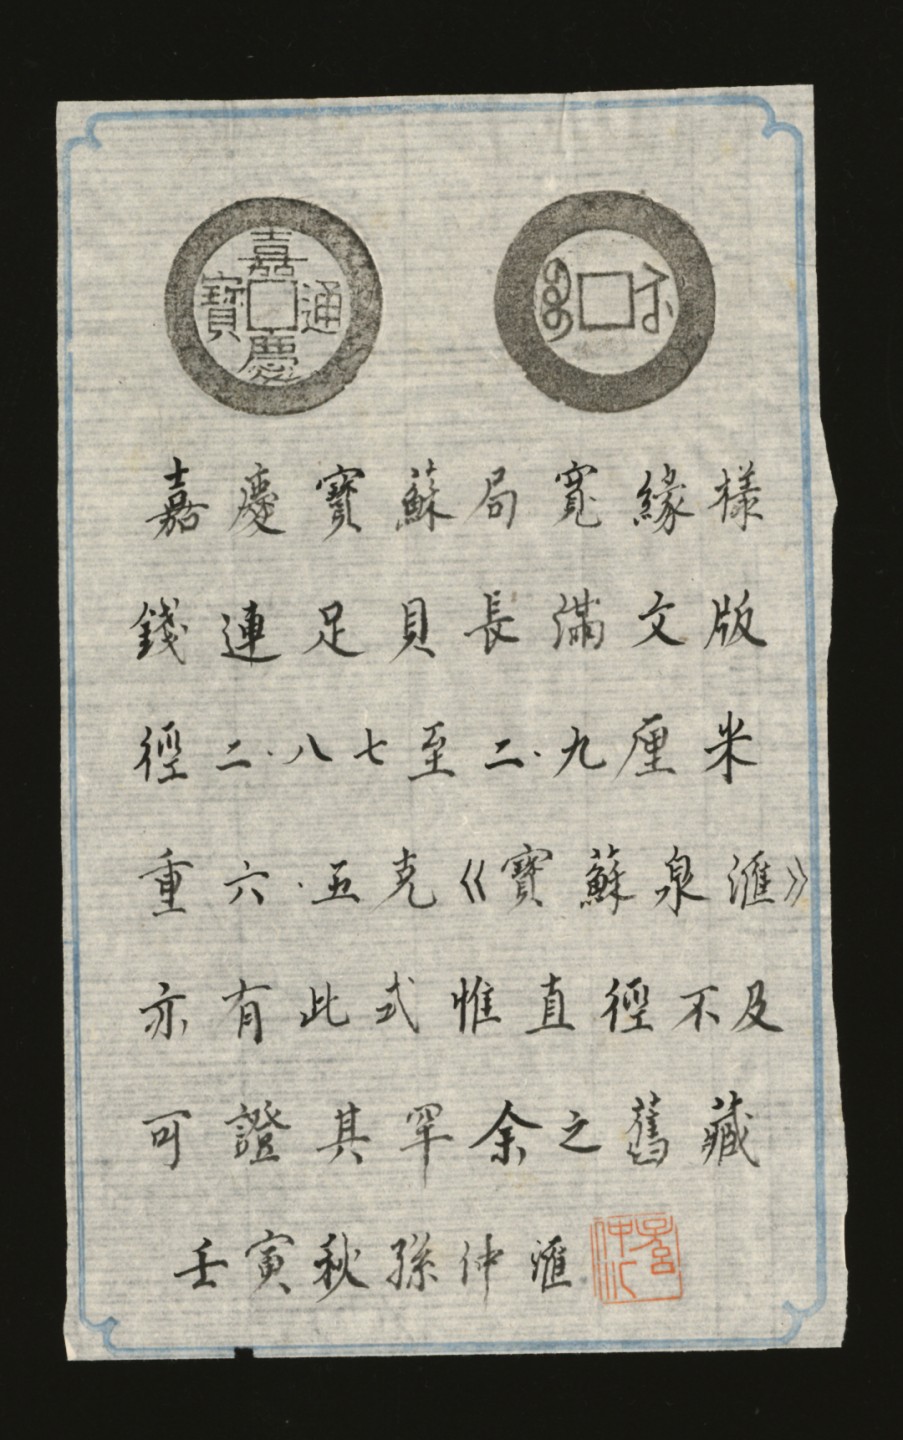 嘉慶通寶
嘉慶寶蘇局寬緣樣
錢連足貝長滿文版
徑二·八七至二·九厘米
重六·五克《寶蘇泉滙》
亦有此式惟直徑不及
可證其罕余之舊藏
壬寅秋孫仲滙